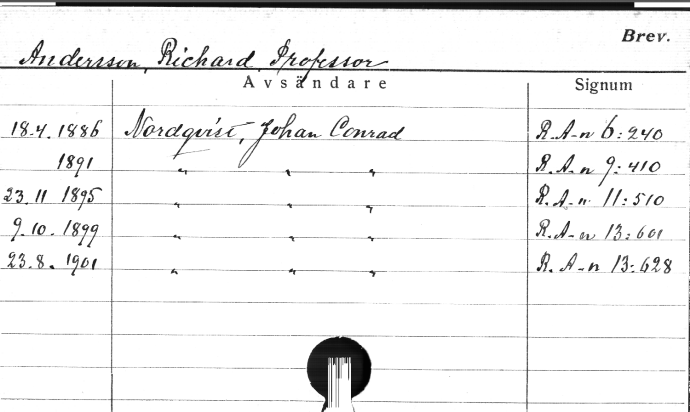 Brev.
Andersson, Richard, Professor
Avsändare Signum
18.4.1886 Nordqvist, Johan Conrad R.A-n 6:240
1891 " " " R.A-n 9:410
23.11 1895 " " " R.A-n 11:510
9.10.1899 " " " R.A-n 13:601
23.8.1901 " " " R.A-n 13:628